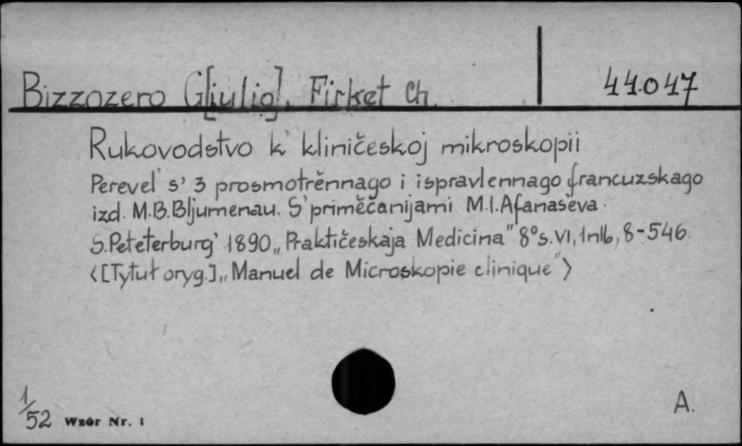 Bizzozero G[iulio], Firket Ch. 44.047
Rukovodstvo k' kliničeskoj mikroskopii
Perevel s' 3 prosmotrěnnago i ispravlennago francuzskago
izd. M.B.Bljumenau. S'priměčanijami M.I.Afanaseva.
S.Peteterburg' 1890 „Praktičeskaja Medicina" 8° s. VI, 1nlb, 8-546
<[Tytuł oryg.] „Manuel de Microskopie clinique">
1/52 Wzór Nr. 1 A.